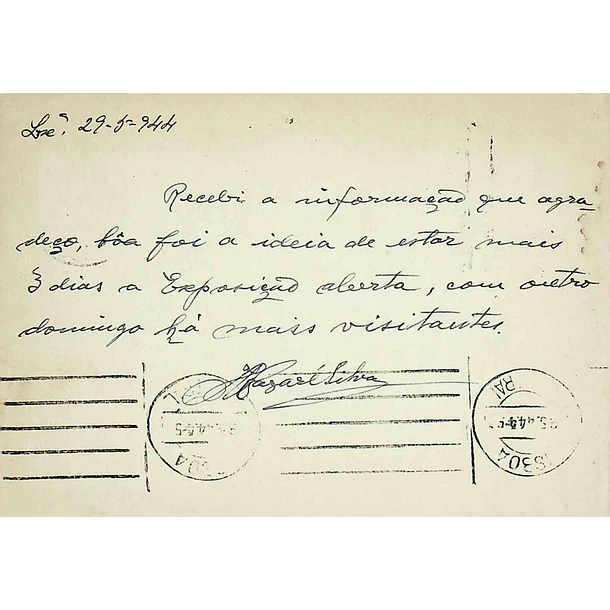 Lxª. 29-5-944
Recebi a informação que agra-
deço, bôa foi a ideia de estar mais
3 dias a Exposição aberta, com outro
domingo há mais visitantes.
Nazaré Silva